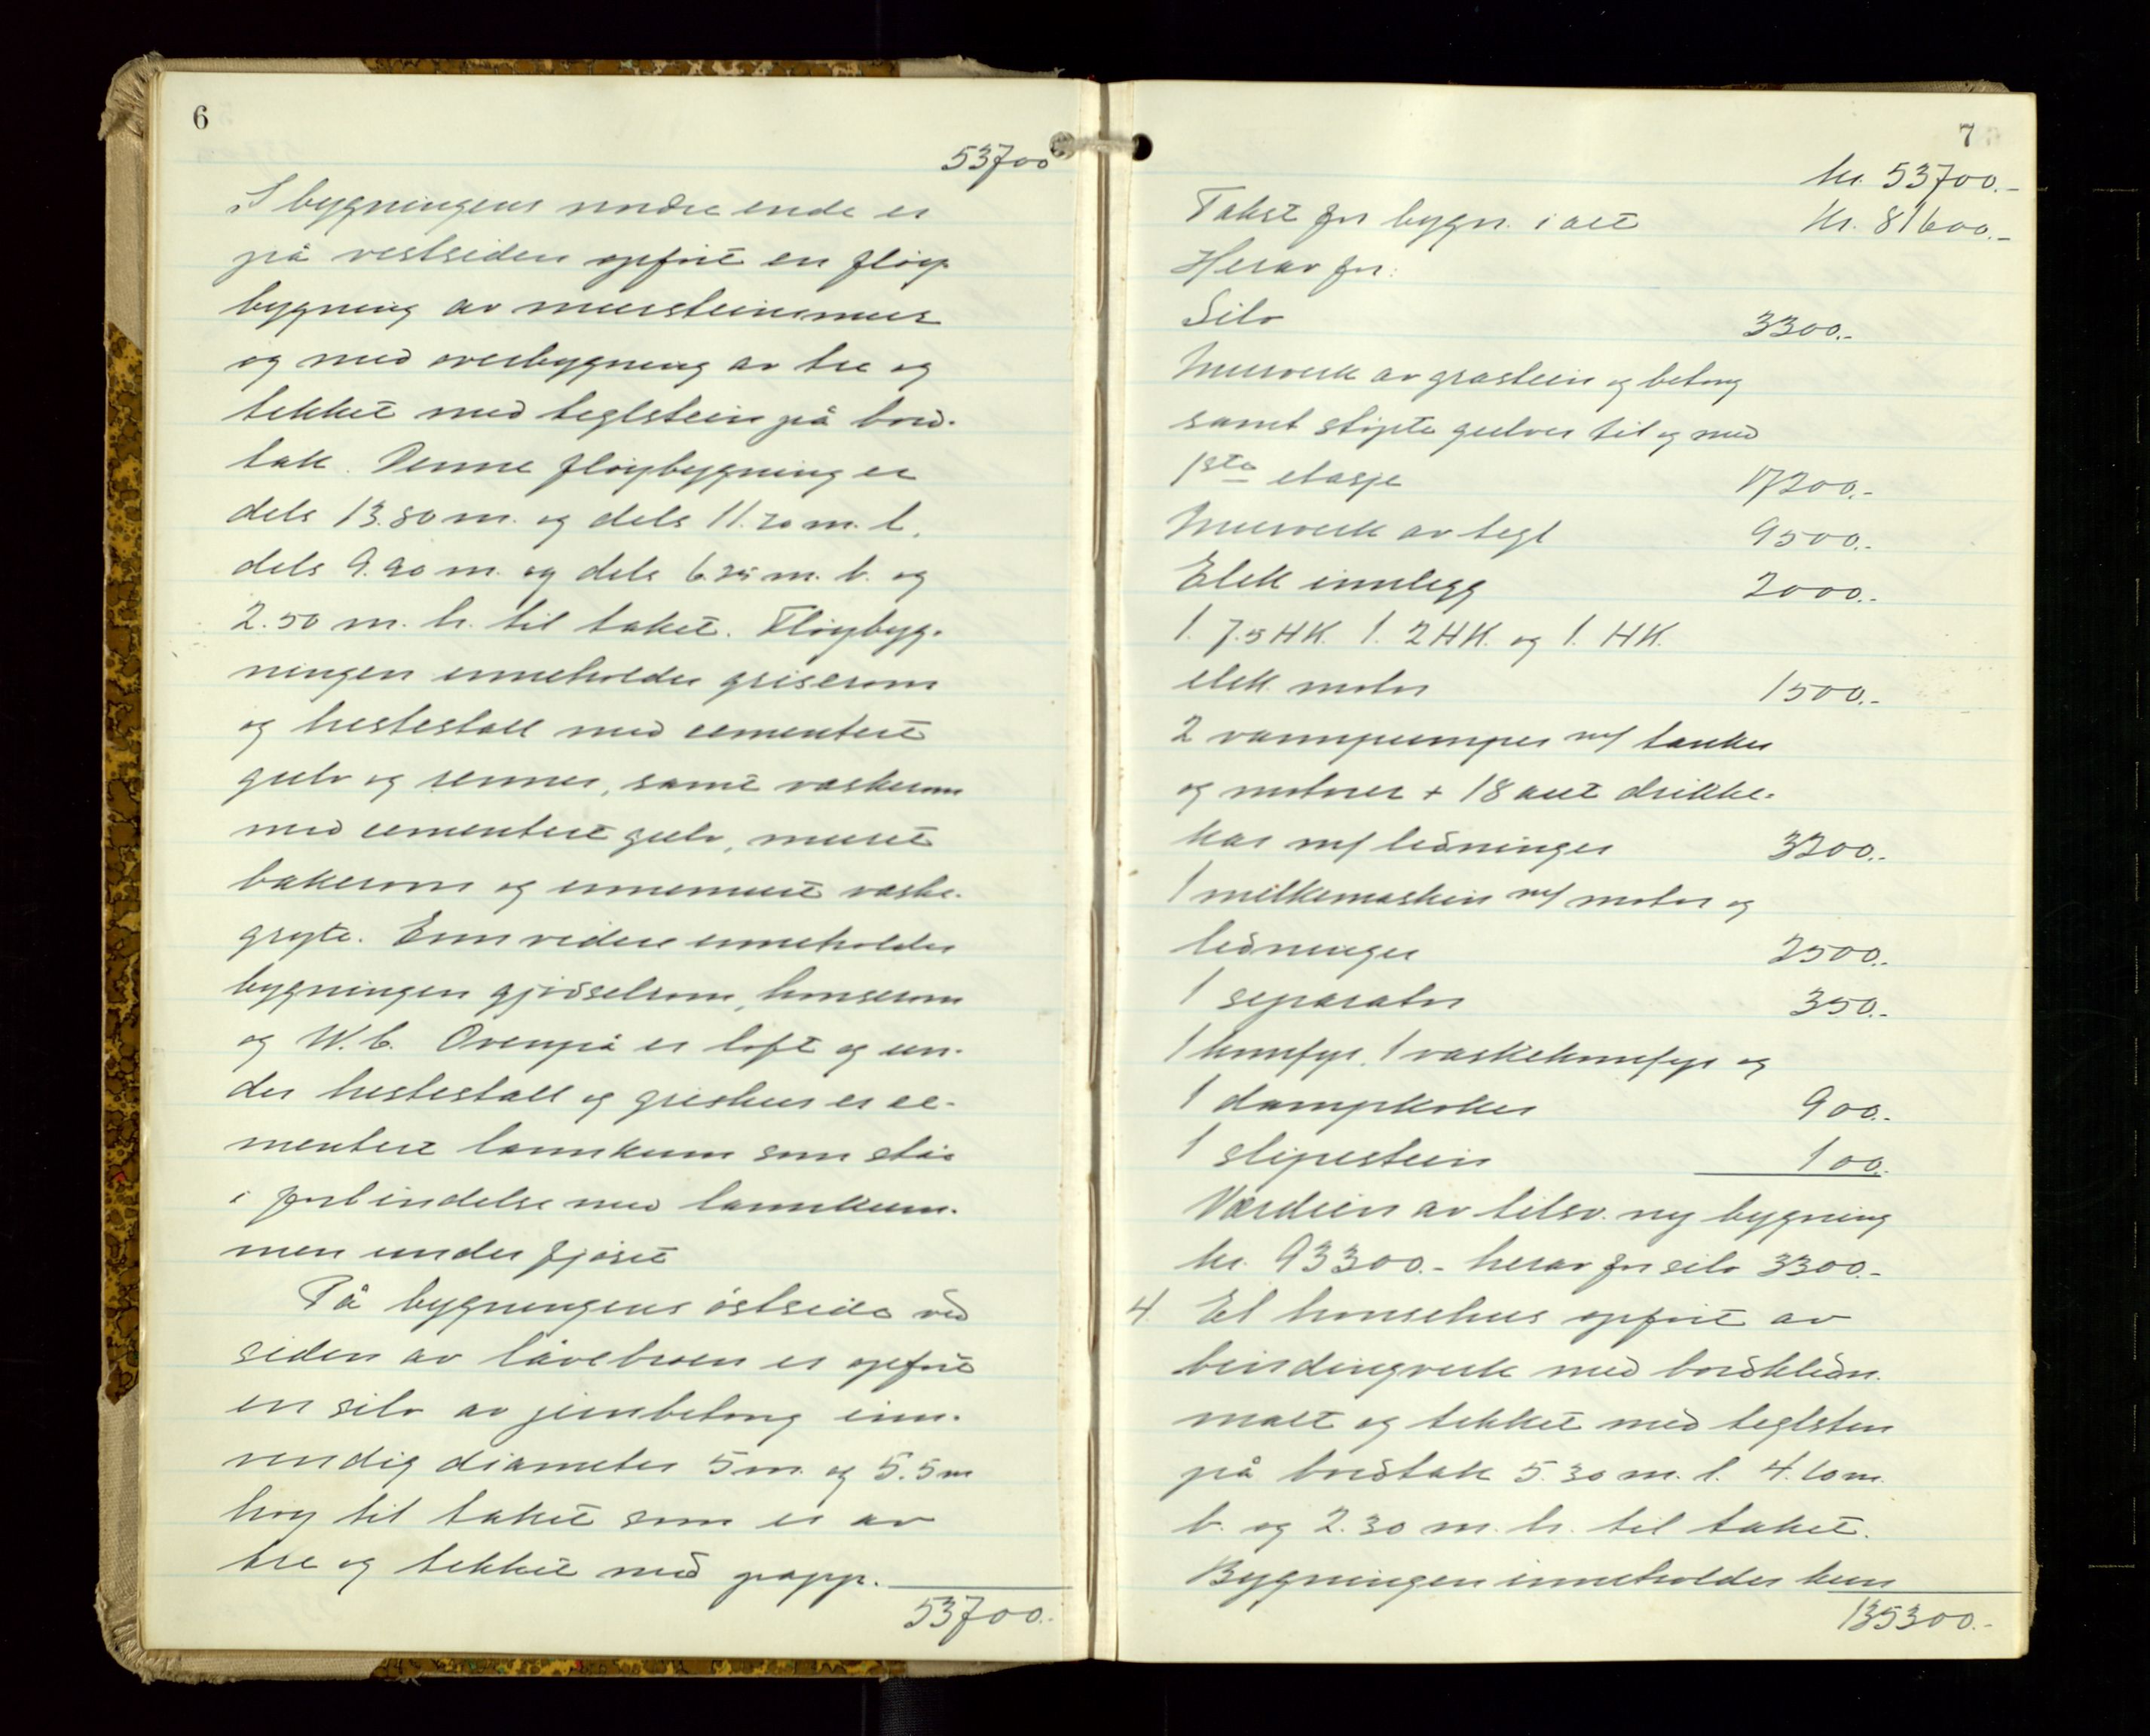 6
53700
I bygningens nordre ende er
på vestsiden opført en fløy-
bygning av mursteinsmur
og med overbygning av tre og
tekket med teglstein på bord-
tak. Denne fløybygning er
dels 13.80 m. og dels 11.20 m. l.
dels 9.90 m. og dels 6.25 m. b. og
2.50 m. h. til taket. Fløybyg-
ningen inneholder griserom
og hestestall med cementert
gulv og renner, samt vaskerom
med cementert gulv, muret
bakerovn og innemuret vaske-
gryte. Enn videre inneholder
bygningen gjødselrom, hønserom
og W.C. Ovenpå er loft og un-
der hestestall og grishus er ce-
mentert lannkum som står
i forbindelse med lannkum-
men under fjøset
På bygningens østside ved
siden av låvebroen er opført
en silo av jernbetong inn-
vendig diameter 5 m. og 5.5 m
høy til taket som er av
tre og tekket med papp.
53700.-
7
kr. 53700.-
Takst for bygn. i alt kr. 81600.-
Herav for:
Silo 3300.-
Murverk av gråstein og betong
samt støpte gulver til og med
1ste etasje 17200.-
Murverk av tegl 9500.-
Elek innlegg 2000.-
1. 7.5 HK. 1. 2 HK. og 1. HK.
elek. motor 1500.-
2 vannpumper m/ tanker
og motorer + 18 aut drikke-
kar m/ ledninger 3200.-
1 melkemaskin m/ motor og
ledninger 2500.-
1 separator 350.-
1 komfyr, 1 vaskekomfyr og
1 dampkoker 900.-
1 slipestein 100.-
Verdien av tilsv. ny bygning
kr. 93300.- herav for silo 3300.-
4. Et hønsehus opført av
bindingverk med bordkledn.
malt og tekket med teglsten
på bordtak 5.30 m. l. 4.10 m.
b. og 2.30 m. h. til taket.
Bygningen inneholder kun
135300.-